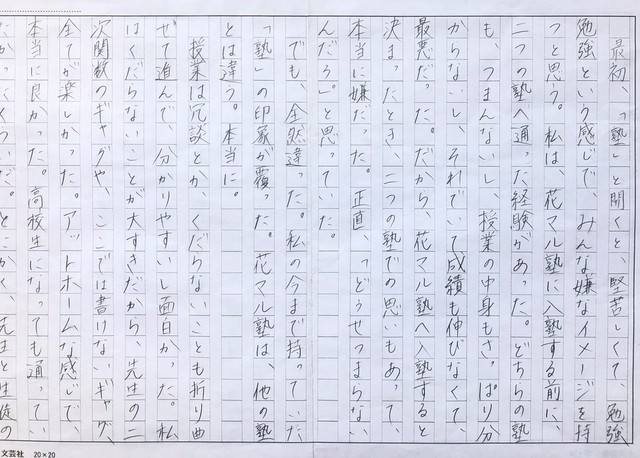 最初、「塾」と聞くと、堅苦しくて、勉強
勉強という感じで、みんな嫌なイメージを持
つと思う。私は、花マル塾に入塾する前に、
二つの塾へ通った経験があった。どちらの塾
も、つまんないし、授業の中身もさっぱり分
からないし、それでいて成績も伸びなくて、
最悪だった。だから、花マル塾へ入塾すると
決まったとき、二つの塾での思いもあって、
本当に嫌だった。正直、「どうせつまらな
んだろう」と思っていた。
でも、全然違った。私の今まで持っていた
「塾」の印象が覆った。花マル塾は、他の塾
とは違う。本当に。
授業は冗談とか、くだらないことも折り曲
ぜて進んで、分かりやすいし面白かった。私
はくだらないことが大すきだから、先生の二
次関数のギャグや、ここでは書けないギャグ、
全てが楽しかった。アットホームな感じで、
本当に良かった。高校生になっても通ってい
たかったくらいだ。とにかく、先生と生徒の
文芸社 20×20